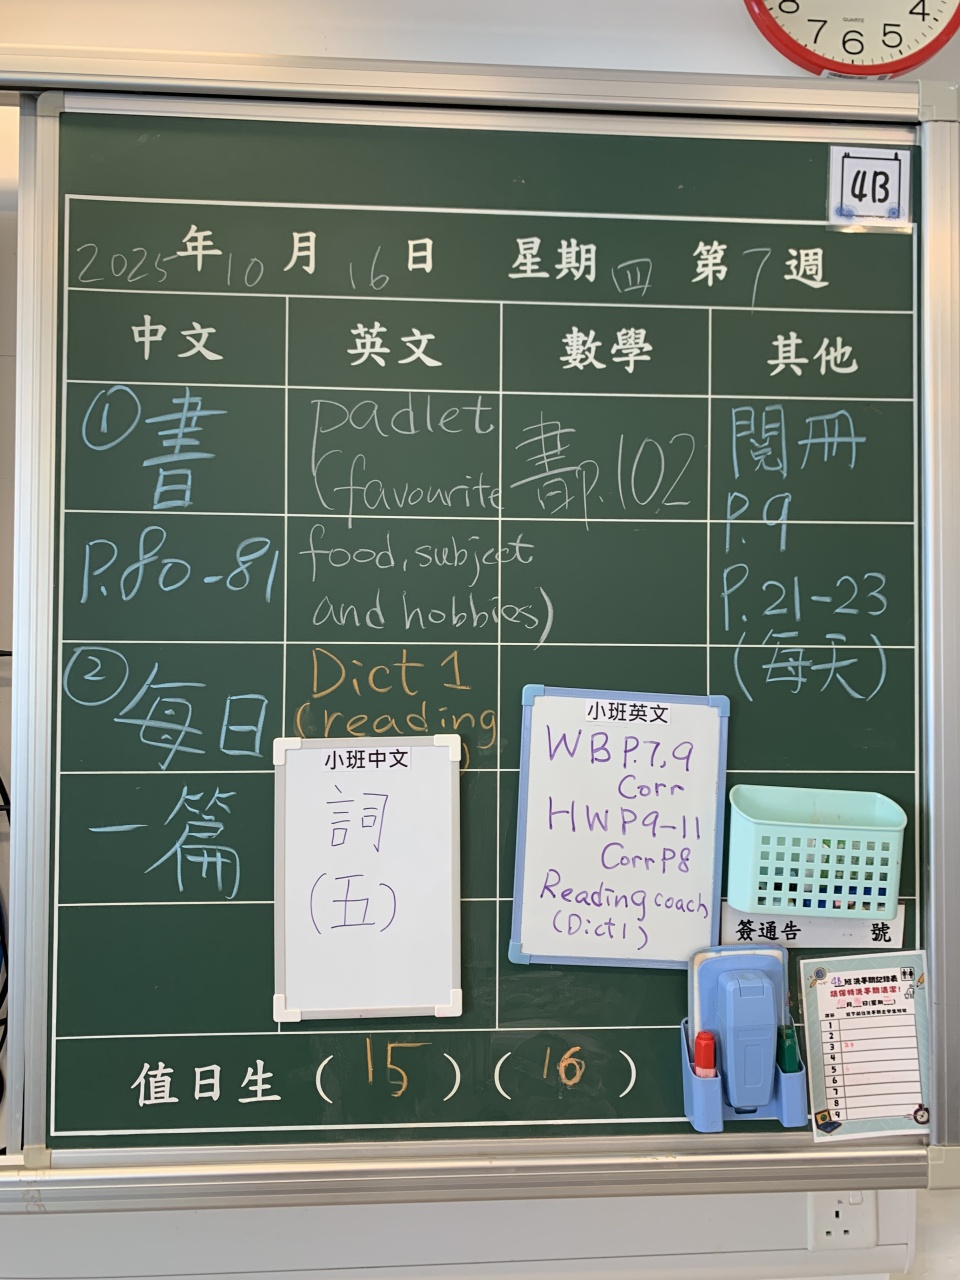 8 7 6 5 4
QUARTZ
4B
2025年10月16日 星期四 第7週
中文 英文 數學 其他
①書
P.80-81
②每日
一篇
padlet
(favourite
food, subject
and hobbies)
Dict 1
(reading
書P.102
閱冊
P.9
P.21-23
(每天)
小班中文
詞
(五)
小班英文
WB P.7,9
Corr
HW P9-11
Corr P8
Reading coach
(Dict1)
簽通告 號
4B班洗手間記錄表
請保持洗手間清潔!
月 日(星期 )
1
2
3
4
5
6
7
8
9
值日生(15)(16)